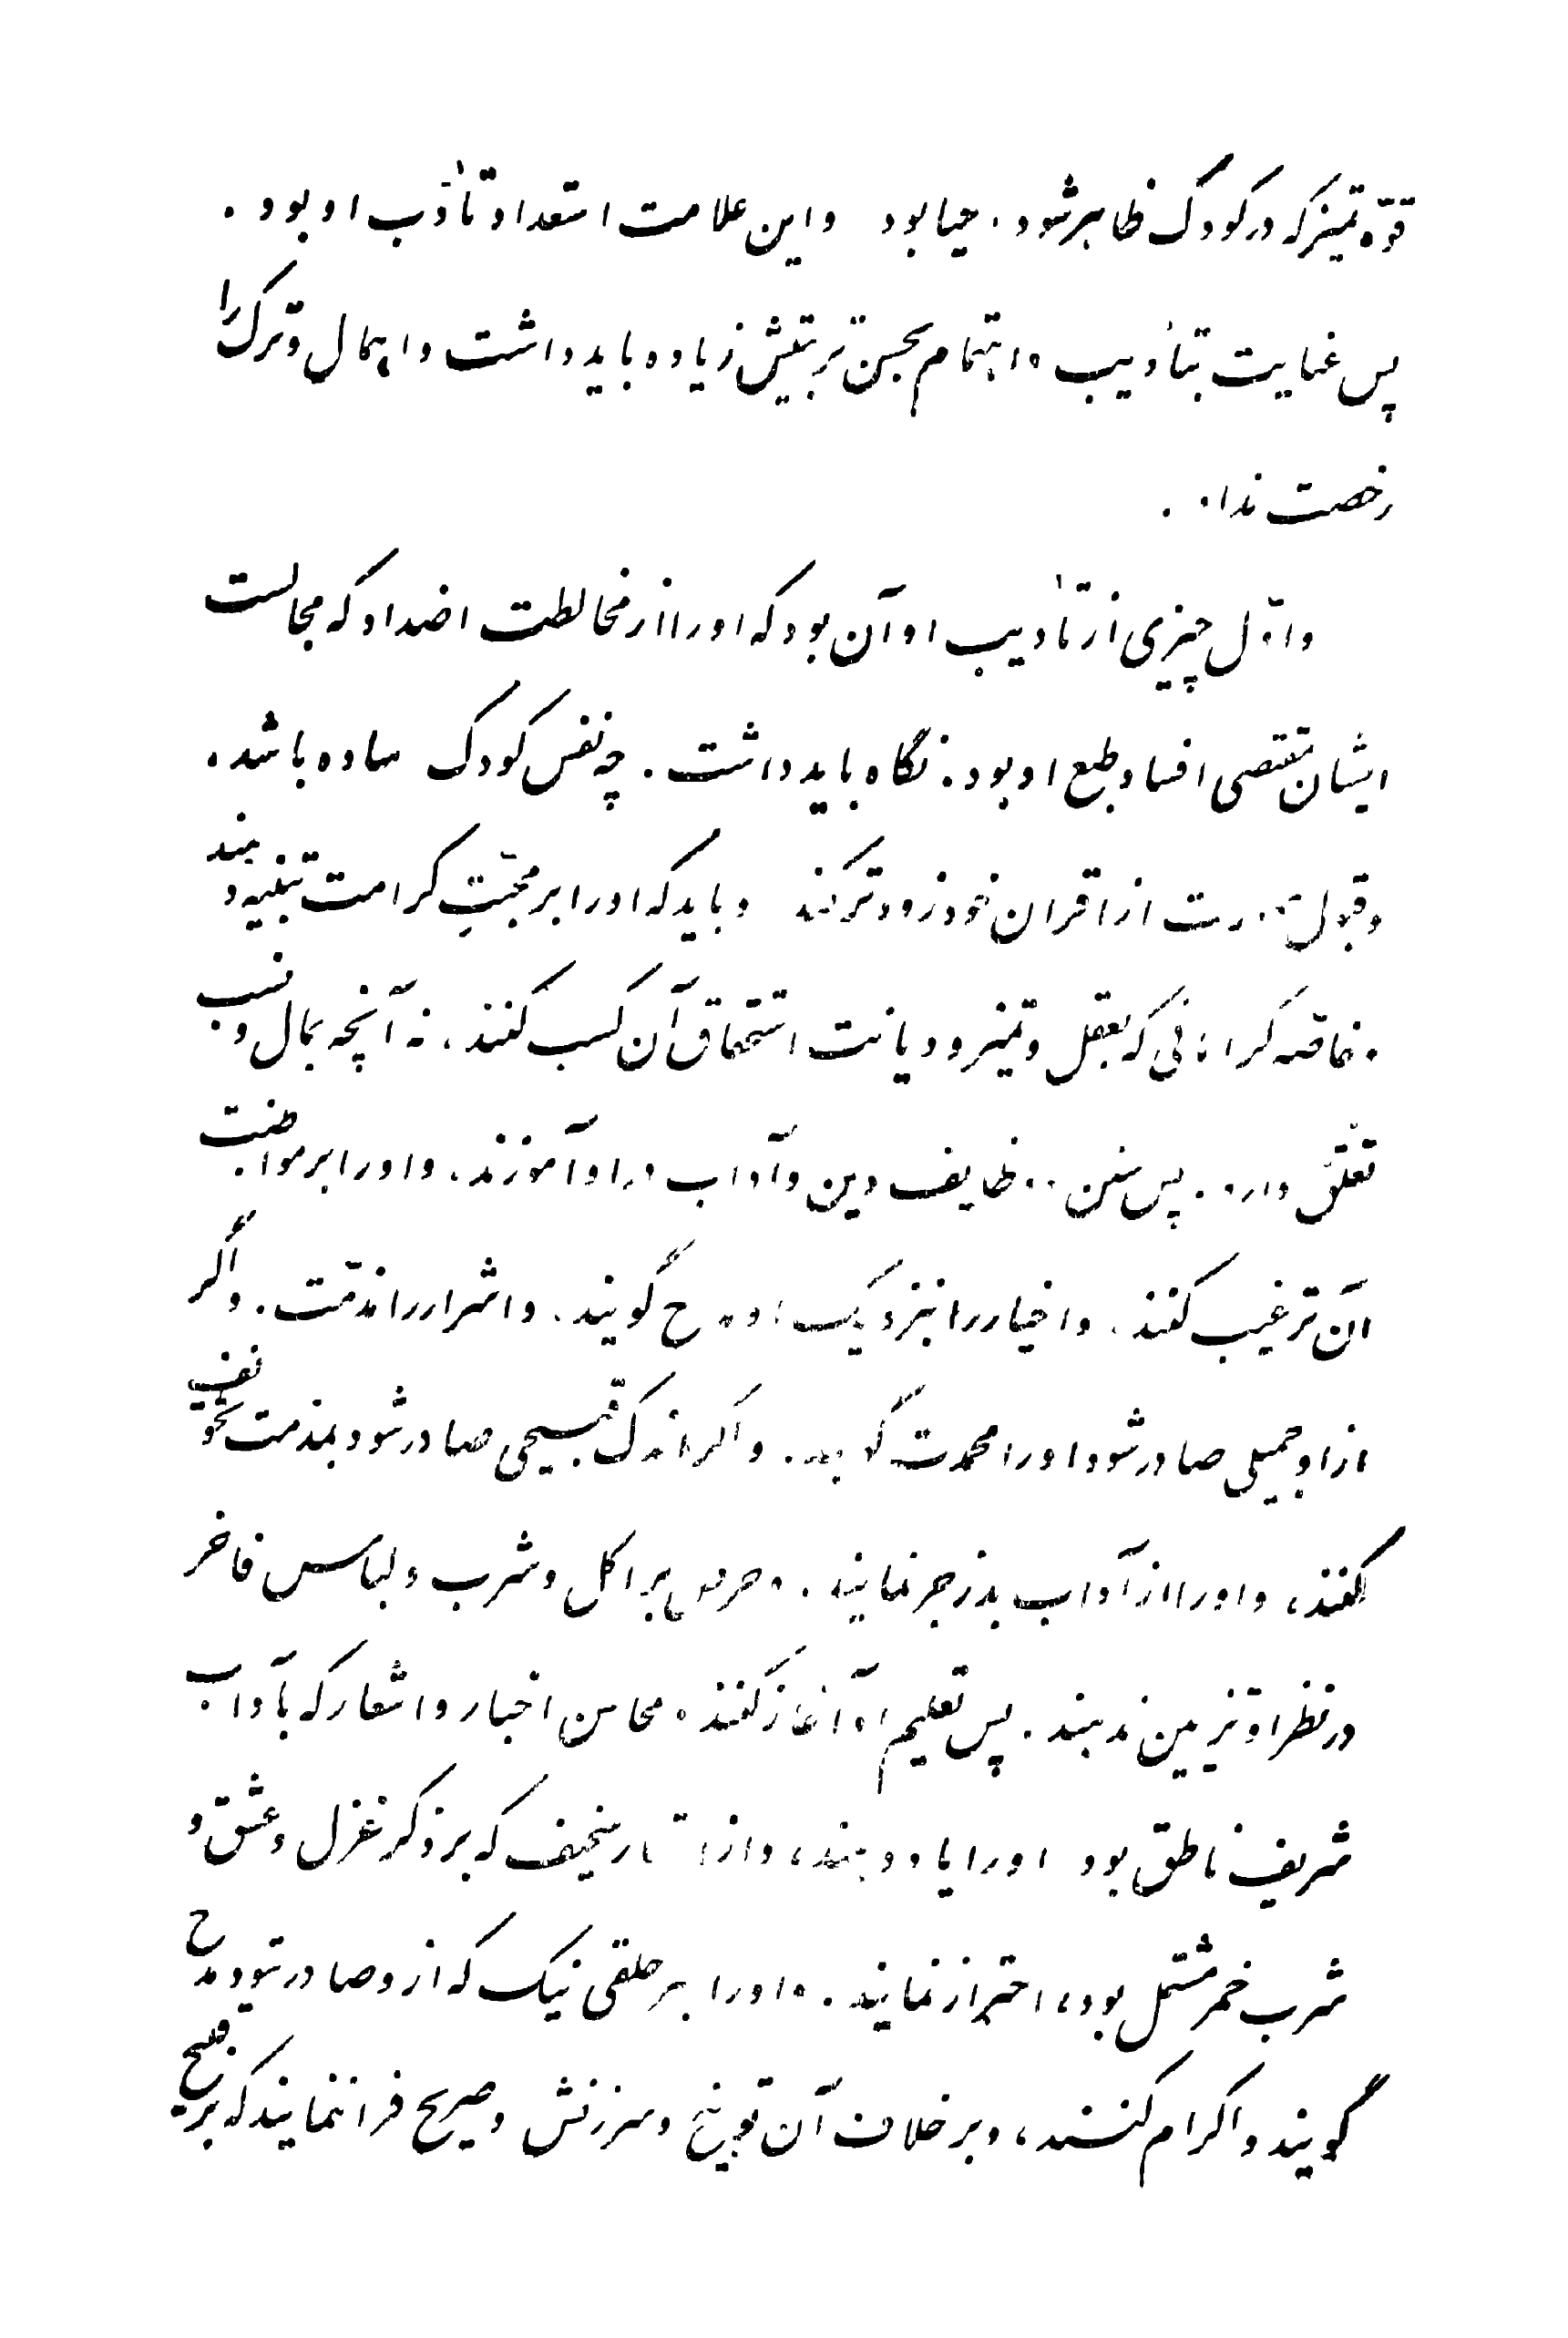 قوّه تمیز که در کودک ظاهر شود، حیا بود و این علامت استعداد تأدّب او بود.
پس عنایت بتأدیب و اهتمام بحسن تربیتش زیاده باید داشت و اهمال و ترک را
رخصت نداد.
و اوّل چیزی از تأدیب او آن بود که او را از مخالطت اضداد که مجالست
ایشان مقتضی افساد طبع او بود، نگاه باید داشت. چه نفس کودک ساده باشد،
و قبول صورت از اقران خود زودتر کند و باید که او را بر محبّتِ کرامت تنبیه دهند
و خاصّه کراماتی که بعقل و تمیز و دیانت استحقاق آن کسب کنند، نه آنچه بمال و نسب
تعلّق دارد. پس سنن و وظایف دین و آداب در او آموزند، و او را بر مواظبت
آن ترغیب کنند. و اخیار را بنزدیک او مدح گویند. و اشرار را مذمّت. و اگر
از او جمیلی صادر شود او را محمدت گویند. و اگر اندک قبیحی صادر شود بمذمت تخویف
کنند، و او را از آداب بد زجر نمایند. و حرص بر اکل و شرب و لباس فاخر
در نظر او تزیین ندهند. پس تعلیم او آغاز کنند و محاسن اخبار و اشعار که بآداب
شریف ناطق بود او را یاد دهند، و از اشعار سخیف که بر ذکر غزل و عشق و
شرب خمر مشتمل بود، احتراز نمایند. و او را بهر خلقی نیک که از و صادر شود مدح
گویند و اکرام کنند، و بر خلاف آن توبیخ و سرزنش و صریح فرا ننمایند که بر قبیح